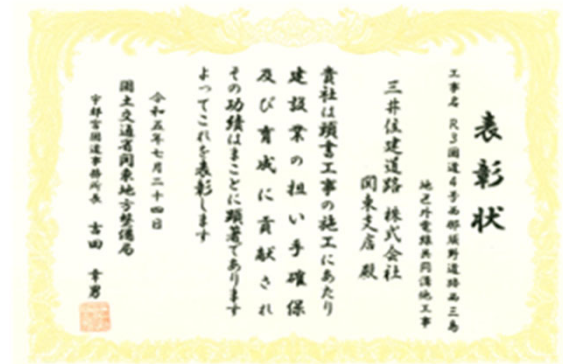 表彰状
工事名 R3国道4号西那須野道路西三島
地区外電線共同溝他工事
三井住建道路 株式会社
関東支店 殿
貴社は頭書工事の施工にあたり
建設業の担い手確保
及び育成に貢献され
その功績はまことに顕著であります
よってこれを表彰します
令和五年七月二十四日
国土交通省関東地方整備局
宇都宮国道事務所長 吉田 幸男